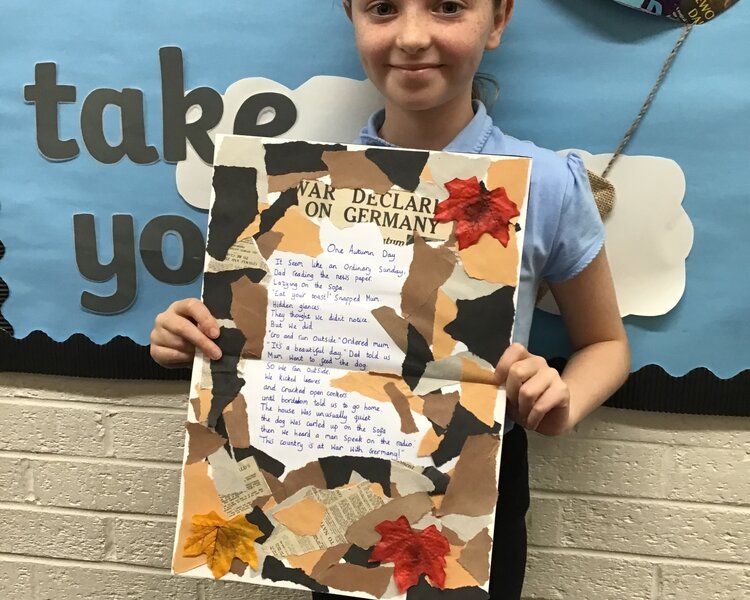 take
you
WAR DECLARE
ON GERMANY
One Autumn Day
It seem like an Ordinary Sunday.
Dad reading the news paper.
Lazying on the Sofa.
"Eat your toast!" Snapped Mum.
Hidden glances
They thought we didn't notice.
But we did
"Go and run outside" Ordered mum
"It's a beautiful day" Dad told us
Mum went to feed the dog.
So we ran outside.
We kicked leaves
and cracked open conkers
until bordem told us to go home
The house was unusually quiet
the dog was curled up on the Sofa
then we heard a man Speak on the radio
"This country is at War with Germany!"